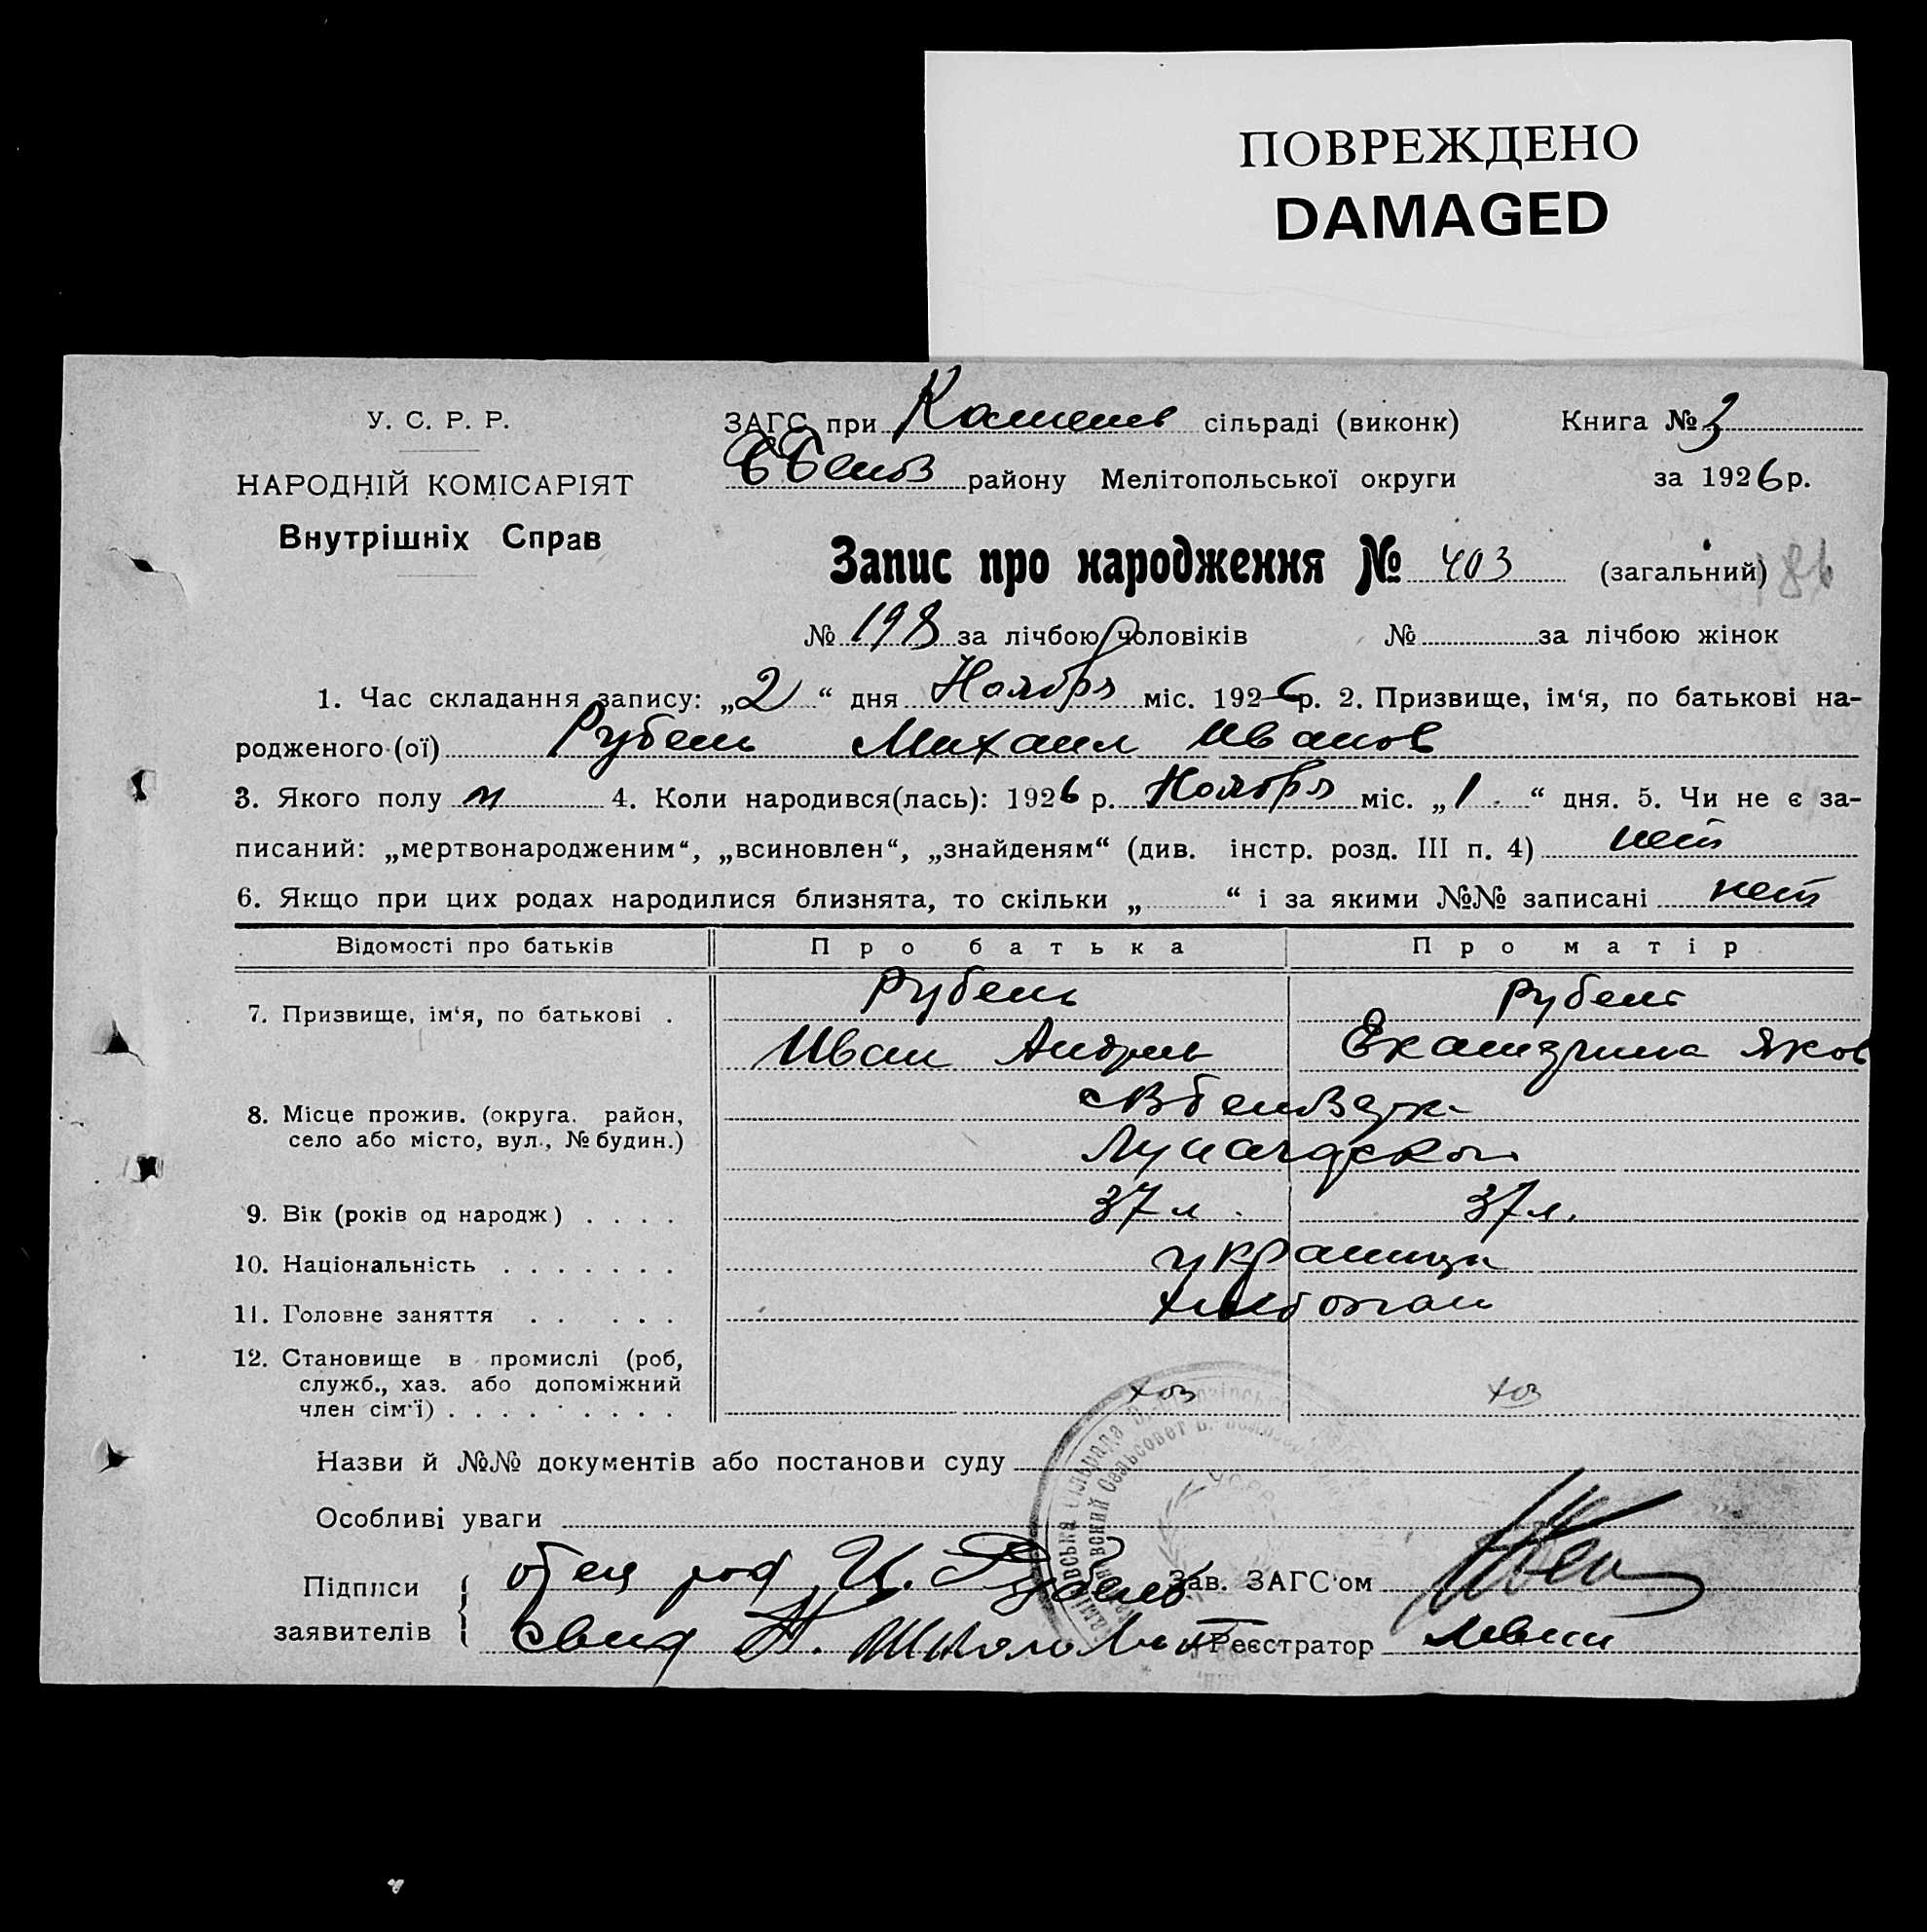 ПОВРЕЖДЕНО
DAMAGED
У. С. Р. Р.
НАРОДНІЙ КОМІСАРІЯТ
Внутрішніх Справ
ЗАГС при Каменев сільраді (виконк) Книга № 3
району Мелітопольської округи за 1926 р.
Запис про народження № 403 (загальний) 86
№ 198 за лічбою чоловіків № за лічбою жінок
1. Час складання запису: „2“ дня Ноября міс. 1926 р. 2. Призвище, ім‘я, по батькові на-
родженого (ої) Рубень Михаил Иванов
3. Якого полу м 4. Коли народився(лась): 1926 р. Ноября міс. „1“ дня. 5. Чи не є за-
писаний: „мертвонародженим“, „всиновлен“, „знайденям“ (див. інстр. розд. III п. 4) нет
6. Якщо при цих родах народилися близнята, то скільки „ “ і за якими №№ записані нет
Відомості про батьків Про батька Про матір
7. Призвище, ім‘я, по батькові . Рубень Рубень
Иван Андрив Екатерина Яков
8. Місце прожив. (округа, район,
село або місто, вул., № будин.)
9. Вік (років од народж) . . . . 37 л. 37 л.
10. Національність . . . . . . . украинцы
11. Головне заняття . . . . . хлебопаш
12. Становище в промислі (роб,
служб., хаз. або допоміжний
член сім‘ї) . . . . . . . . . хоз хоз
Назви й №№ документів або постанови суду
Особливі уваги
Підписи
заявителів
отец род И. Рубень Зав. ЗАГС‘ом
свид Реєстратор
УСРР